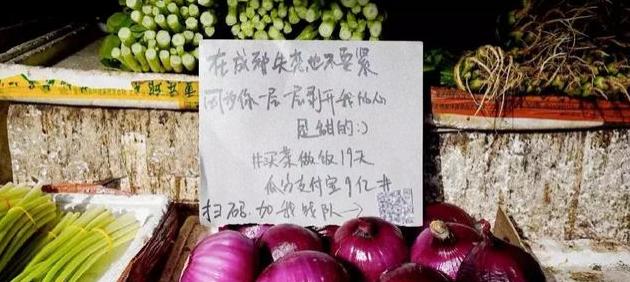 在成都失恋也不要紧
因为你一层一层剥开我的心
是甜的:)
#买菜做饭19天
瓜分支付宝9亿#
扫码.加我战队→